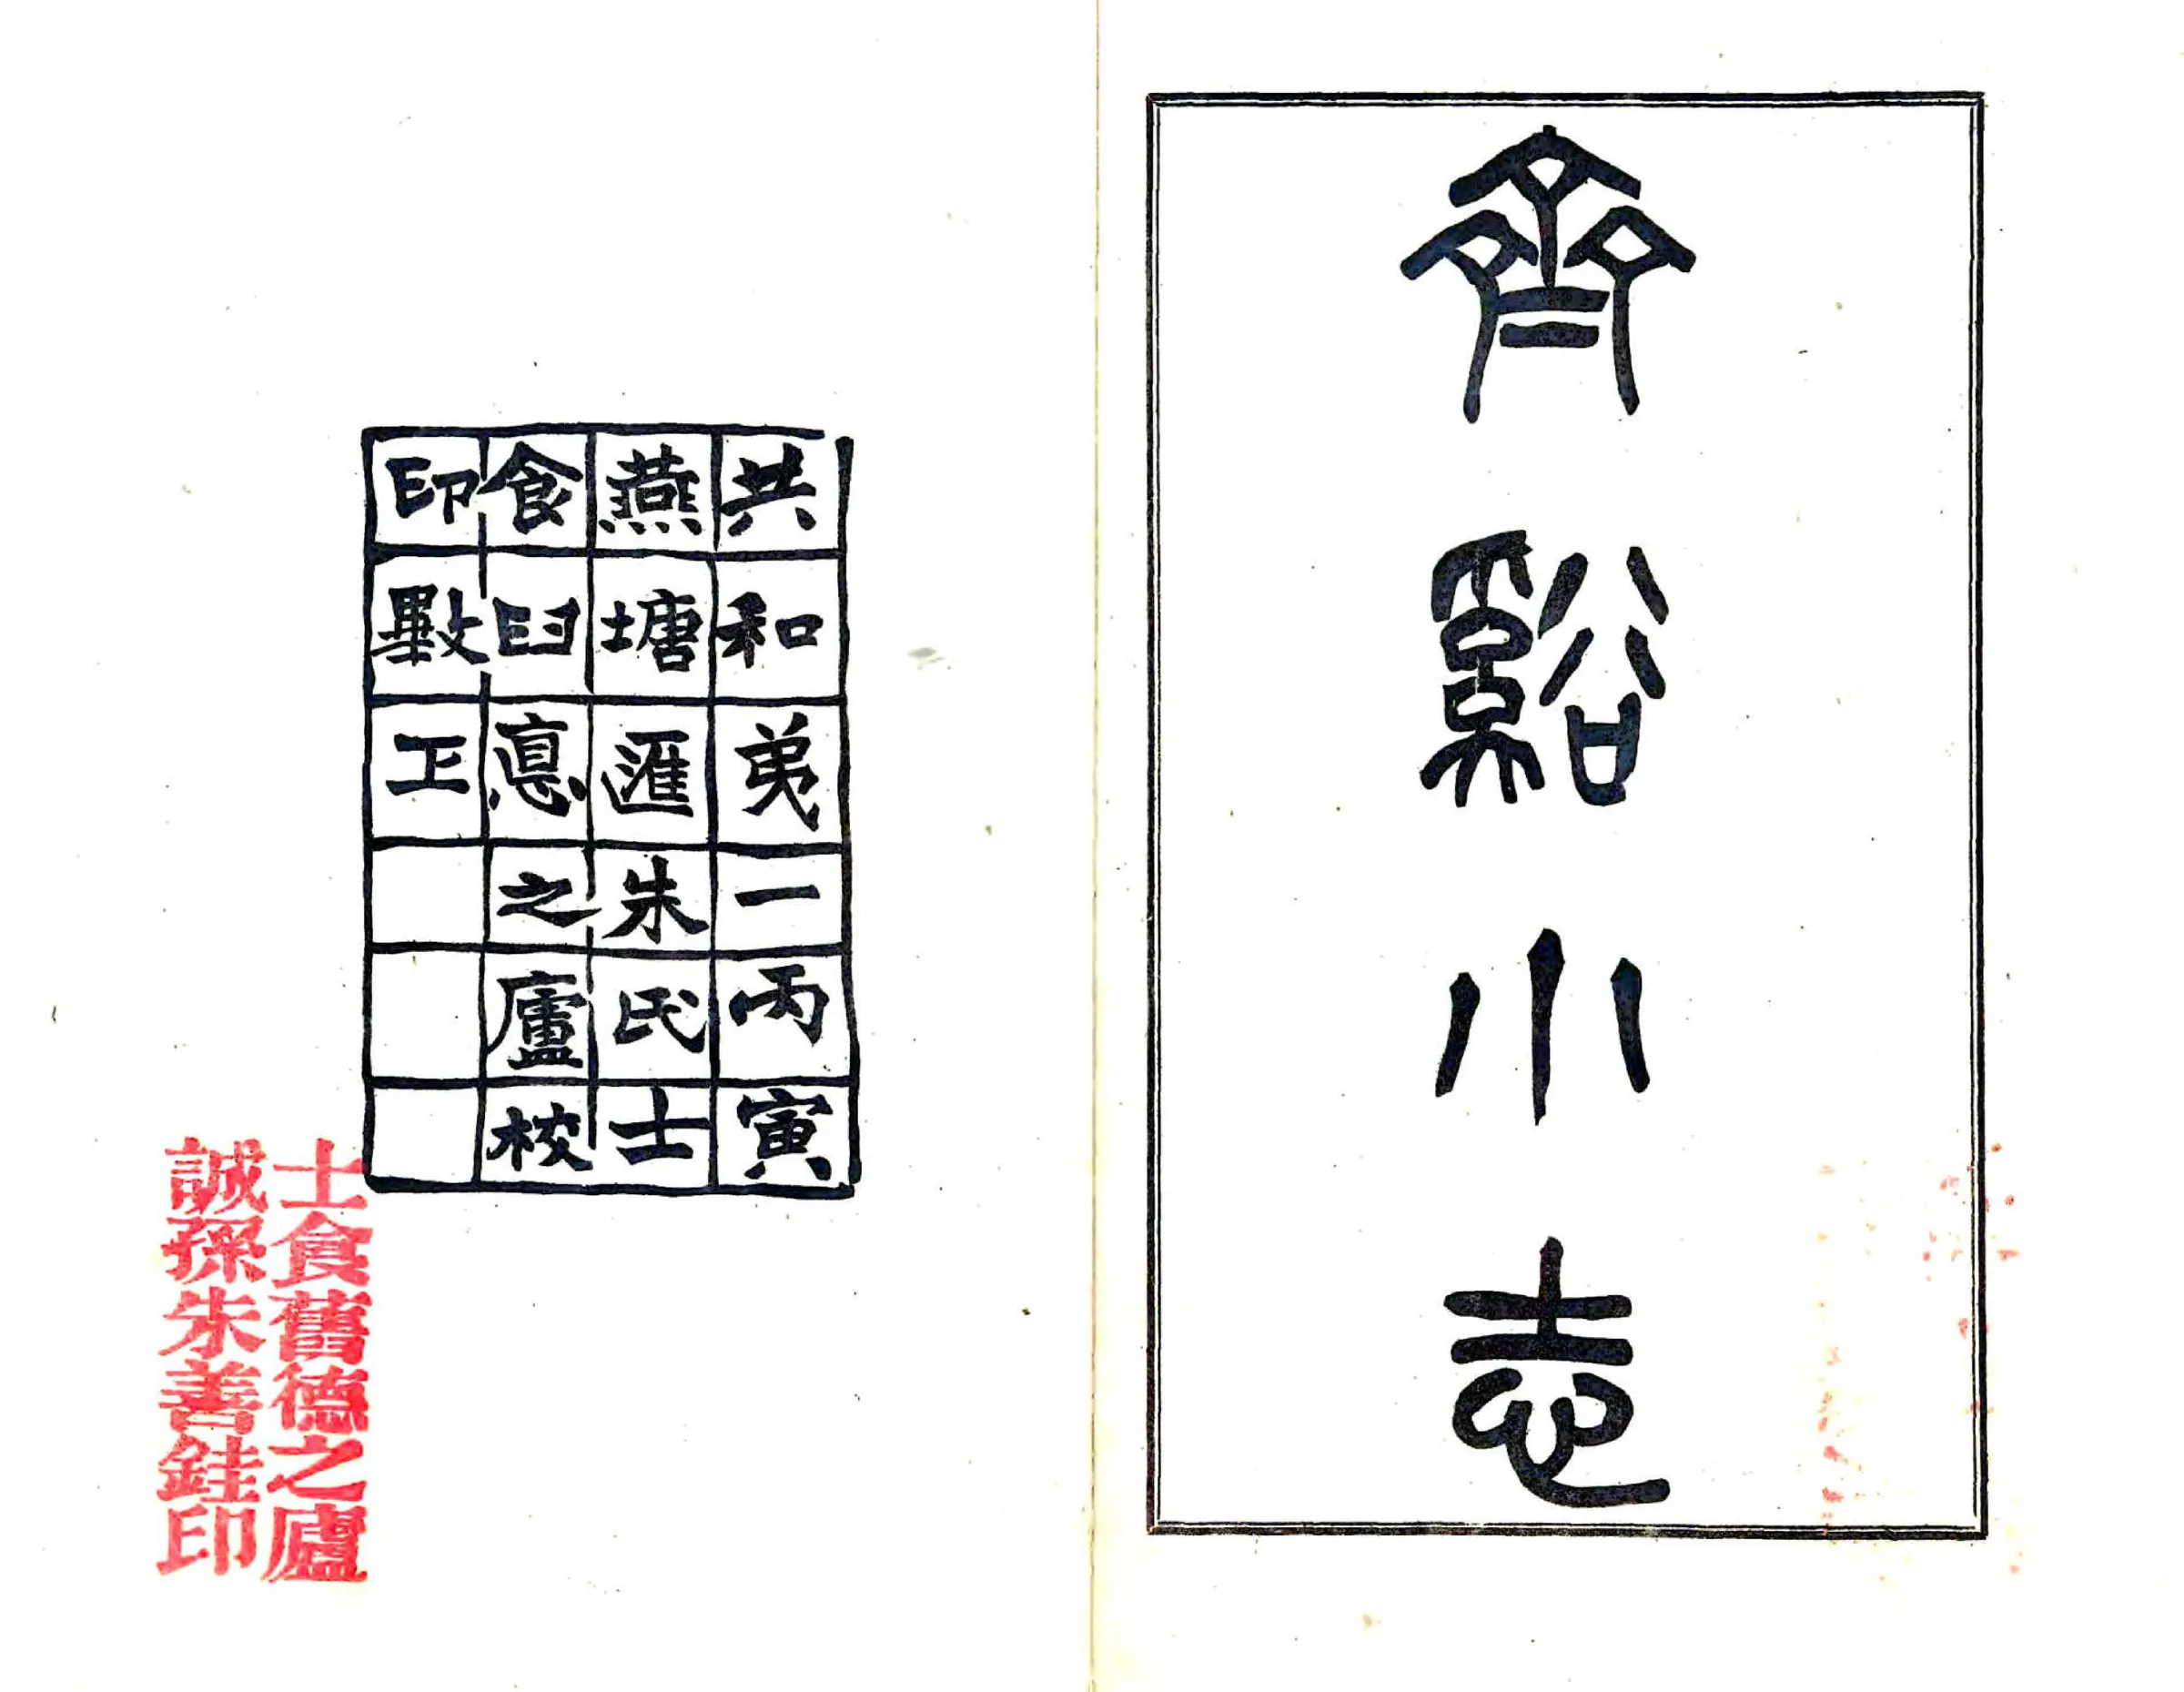 齊谿小志
共和弟一丙寅
燕塘匯朱氏士
食臼悳之廬校
印㪤工
士食舊德之廬
誠孫朱善銈印